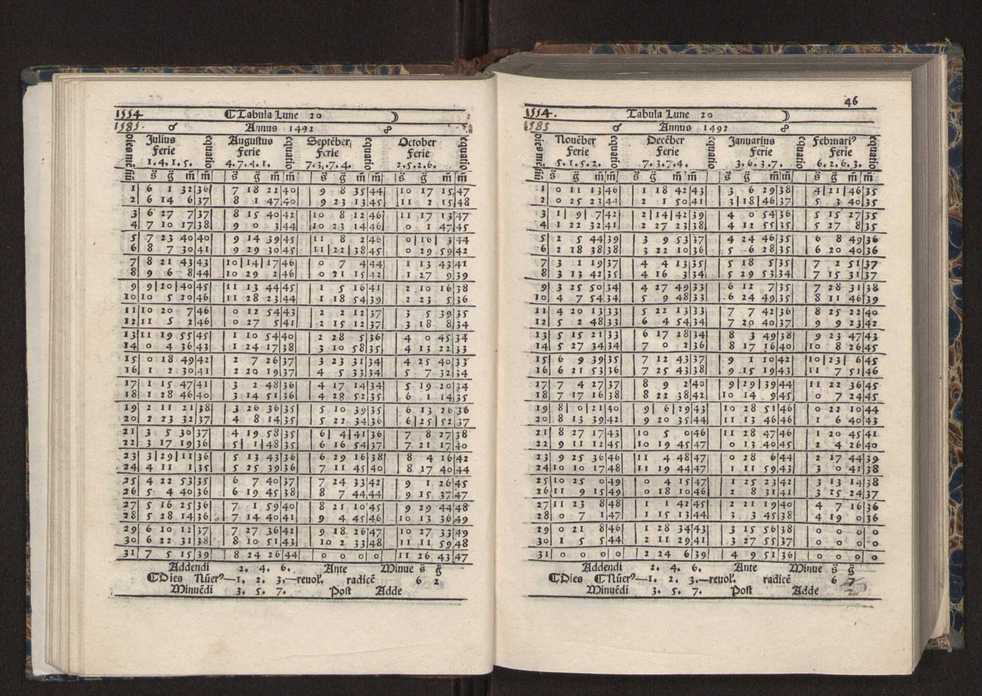 1554 ☾Tabula Lune 20 ☽
1585. ♂ Annus 1492 ☍
Julius Augustus Septẽber, October
Ferie Ferie Ferie Ferie
1. 4. 1. 5. 4. 7. 4. 1. 7. 3. 7. 4. 2. 5. 2. 6.
s̃ g̃ m̃ m̃ s̃ g̃ m̃ m̃ s̃ g̃ m̃ m̃ s̃ g̃ m̃ m̃
1 6 1 32 36 7 18 22 40 9 8 35 44 10 17 15 47
2 6 14 6 37 8 1 47 40 9 23 13 45 11 2 15 48
3 6 27 7 37 8 15 40 42 10 8 12 46 11 17 13 47
4 7 10 17 38 9 0 3 44 10 23 14 46 0 1 47 45
5 7 23 40 40 9 14 39 45 11 8 2 46 0 16 3 44
6 8 7 30 41 9 29 30 45 11 22 38 45 0 29 59 42
7 8 21 43 43 10 14 17 46 0 7 4 44 1 13 43 41
8 9 6 8 44 10 29 2 46 0 21 15 42 1 27 9 39
9 9 20 40 45 11 13 44 45 1 5 16 41 2 10 16 38
10 10 5 20 46 11 28 23 44 1 18 54 39 2 23 5 36
11 10 20 7 46 0 12 54 43 2 2 12 37 3 5 39 35
12 11 5 2 46 0 27 5 41 2 15 12 37 3 18 8 34
13 11 19 55 45 1 10 54 40 2 28 5 36 4 0 45 34
14 0 4 36 43 1 24 17 38 3 10 58 35 4 13 22 33
15 0 18 49 42 2 7 26 37 3 23 31 34 4 25 40 33
16 1 2 30 41 2 20 19 37 4 5 33 34 5 7 32 34
17 1 15 47 41 3 2 48 36 4 17 14 34 5 19 20 34
18 1 28 46 40 3 14 51 36 4 28 52 35 6 1 14 35
19 2 11 21 38 3 26 36 35 5 10 39 35 6 13 26 36
20 2 23 32 37 4 8 14 35 5 22 34 36 6 25 52 37
21 3 5 30 37 4 19 58 35 6 4 41 36 7 8 27 38
22 3 17 19 36 5 1 48 35 6 16 54 37 7 21 17 40
23 3 29 11 36 5 13 43 36 6 29 16 38 8 4 16 42
24 4 11 1 35 5 25 39 36 7 11 45 40 8 17 40 44
25 4 22 53 35 6 7 40 37 7 24 33 42 9 1 26 45
26 5 4 40 36 6 19 45 38 8 7 44 44 9 15 37 47
27 5 16 25 36 7 1 59 40 8 21 10 45 9 29 44 48
28 5 28 14 36 7 14 40 41 9 4 45 46 10 13 36 49
29 6 10 12 37 7 27 36 42 9 18 26 47 10 27 33 49
30 6 22 31 38 8 10 51 43 10 2 33 48 11 11 59 48
31 7 5 15 39 8 24 26 44 0 0 0 0 11 26 43 47
Addendi 2. 4. 6. Ante Minue s̃ g̃
☾Dies Nũerꝰ—1. 2. 3.—reuol'. radicẽ 6 2
Minuẽdi 3. 5. 7. Post Adde
46
1554. Tabula Lune 20 ☽
1585 ♂ Annus 1492 ☍
Nouẽber Decẽber Januarius Februariꝰ
Ferie Ferie Ferie Ferie
5. 1. 5. 2. 7. 3. 7. 4. 3. 6. 3. 7. 6. 2. 6. 3.
s̃ g̃ m̃ m̃ s̃ g̃ m̃ m̃ s̃ g̃ m̃ m̃ s̃ g̃ m̃ m̃
1 0 11 13 46 1 18 42 43 3 6 29 38 4 21 46 35
2 0 25 23 44 2 1 50 41 3 18 46 37 5 3 40 35
3 1 9 7 42 2 14 42 39 4 0 54 36 5 15 27 35
4 1 22 32 41 2 27 23 38 4 12 55 35 5 27 8 35
5 2 5 44 39 3 9 53 37 4 24 46 35 6 8 49 36
6 2 18 38 38 3 22 10 36 5 6 28 35 6 20 40 36
7 3 1 19 37 4 4 13 35 5 18 5 35 7 2 51 37
8 3 13 42 35 4 16 3 34 5 29 53 34 7 15 31 37
9 3 25 50 34 4 27 49 33 6 12 7 35 7 28 31 38
10 4 7 54 34 5 9 48 33 6 24 49 35 8 11 46 39
11 4 20 13 33 5 22 13 33 7 7 42 36 8 25 22 40
12 5 2 48 33 6 4 54 34 7 20 40 37 9 9 23 42
13 5 15 21 33 6 17 28 34 8 3 49 38 9 23 47 43
14 5 27 34 34 7 0 2 36 8 17 16 40 10 8 26 45
15 6 9 39 35 7 12 43 37 9 1 10 42 10 23 6 45
16 6 21 53 36 7 25 43 38 9 15 19 43 11 7 51 46
17 7 4 27 37 8 9 2 40 9 29 39 44 11 22 36 45
18 7 17 16 38 8 22 38 42 10 14 9 45 0 7 24 45
19 8 0 21 40 9 6 29 43 10 28 51 46 0 22 10 44
20 8 13 39 42 9 20 35 44 11 13 46 46 1 6 40 43
21 8 27 17 43 10 5 0 46 11 28 47 46 1 20 45 41
22 9 11 12 45 10 19 45 47 0 13 40 45 2 4 26 40
23 9 25 36 46 11 4 48 47 0 28 6 44 2 17 44 39
24 10 10 17 48 11 19 44 47 1 11 59 43 3 0 41 38
25 10 25 0 49 0 4 15 47 1 25 23 42 3 13 14 38
26 11 9 15 49 0 18 10 46 2 8 31 41 3 25 24 37
27 11 23 8 48 1 1 42 45 2 21 19 40 4 7 16 36
28 0 7 1 47 1 15 13 44 3 3 45 38 4 19 0 36
29 0 21 8 46 1 28 34 43 3 15 56 38 0 0 0 0
30 1 5 5 44 2 11 29 41 3 27 55 37 0 0 0 0
31 0 0 0 0 2 24 6 39 4 9 51 36 0 0 0 0
Addendi 2. 4. 6. Ante Minue s̃ g̃
☾Dies ☾Nũerꝰ—1. 2. 3.—reuol'. radicẽ 6 7
Minuẽdi 3. 5. 7. Post Adde